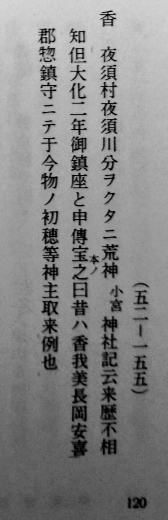 (五二-一五五)
香 夜須村夜須川分ヲクタニ荒神 小宮 神社記云来歴不相
知但大化二年御鎮座と申傳宝本ノ之曰昔ハ香我美長岡安喜
郡惣鎮守ニテ于今物ノ初穂等神主取来例也
120